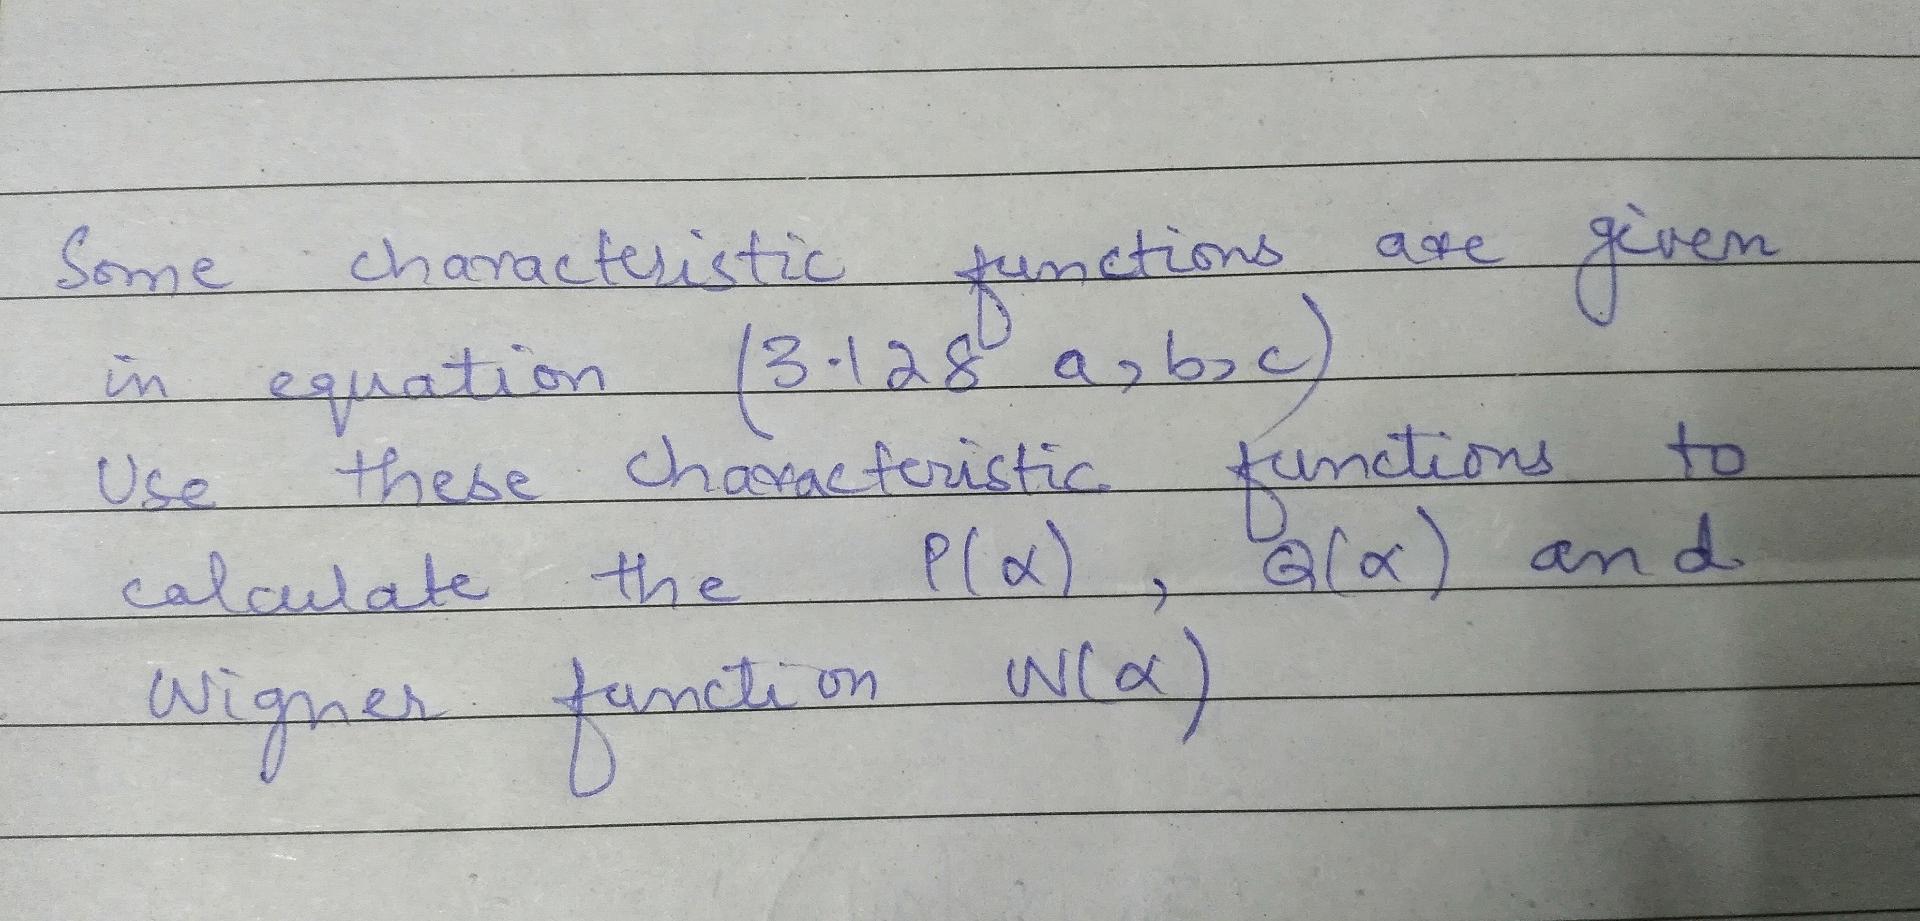 Some characteristic functions are given
in equation (3.128 a, b, c)
Use these characteristic functions to
calculate the P(α), Q(α) and
Wigner function W(α)